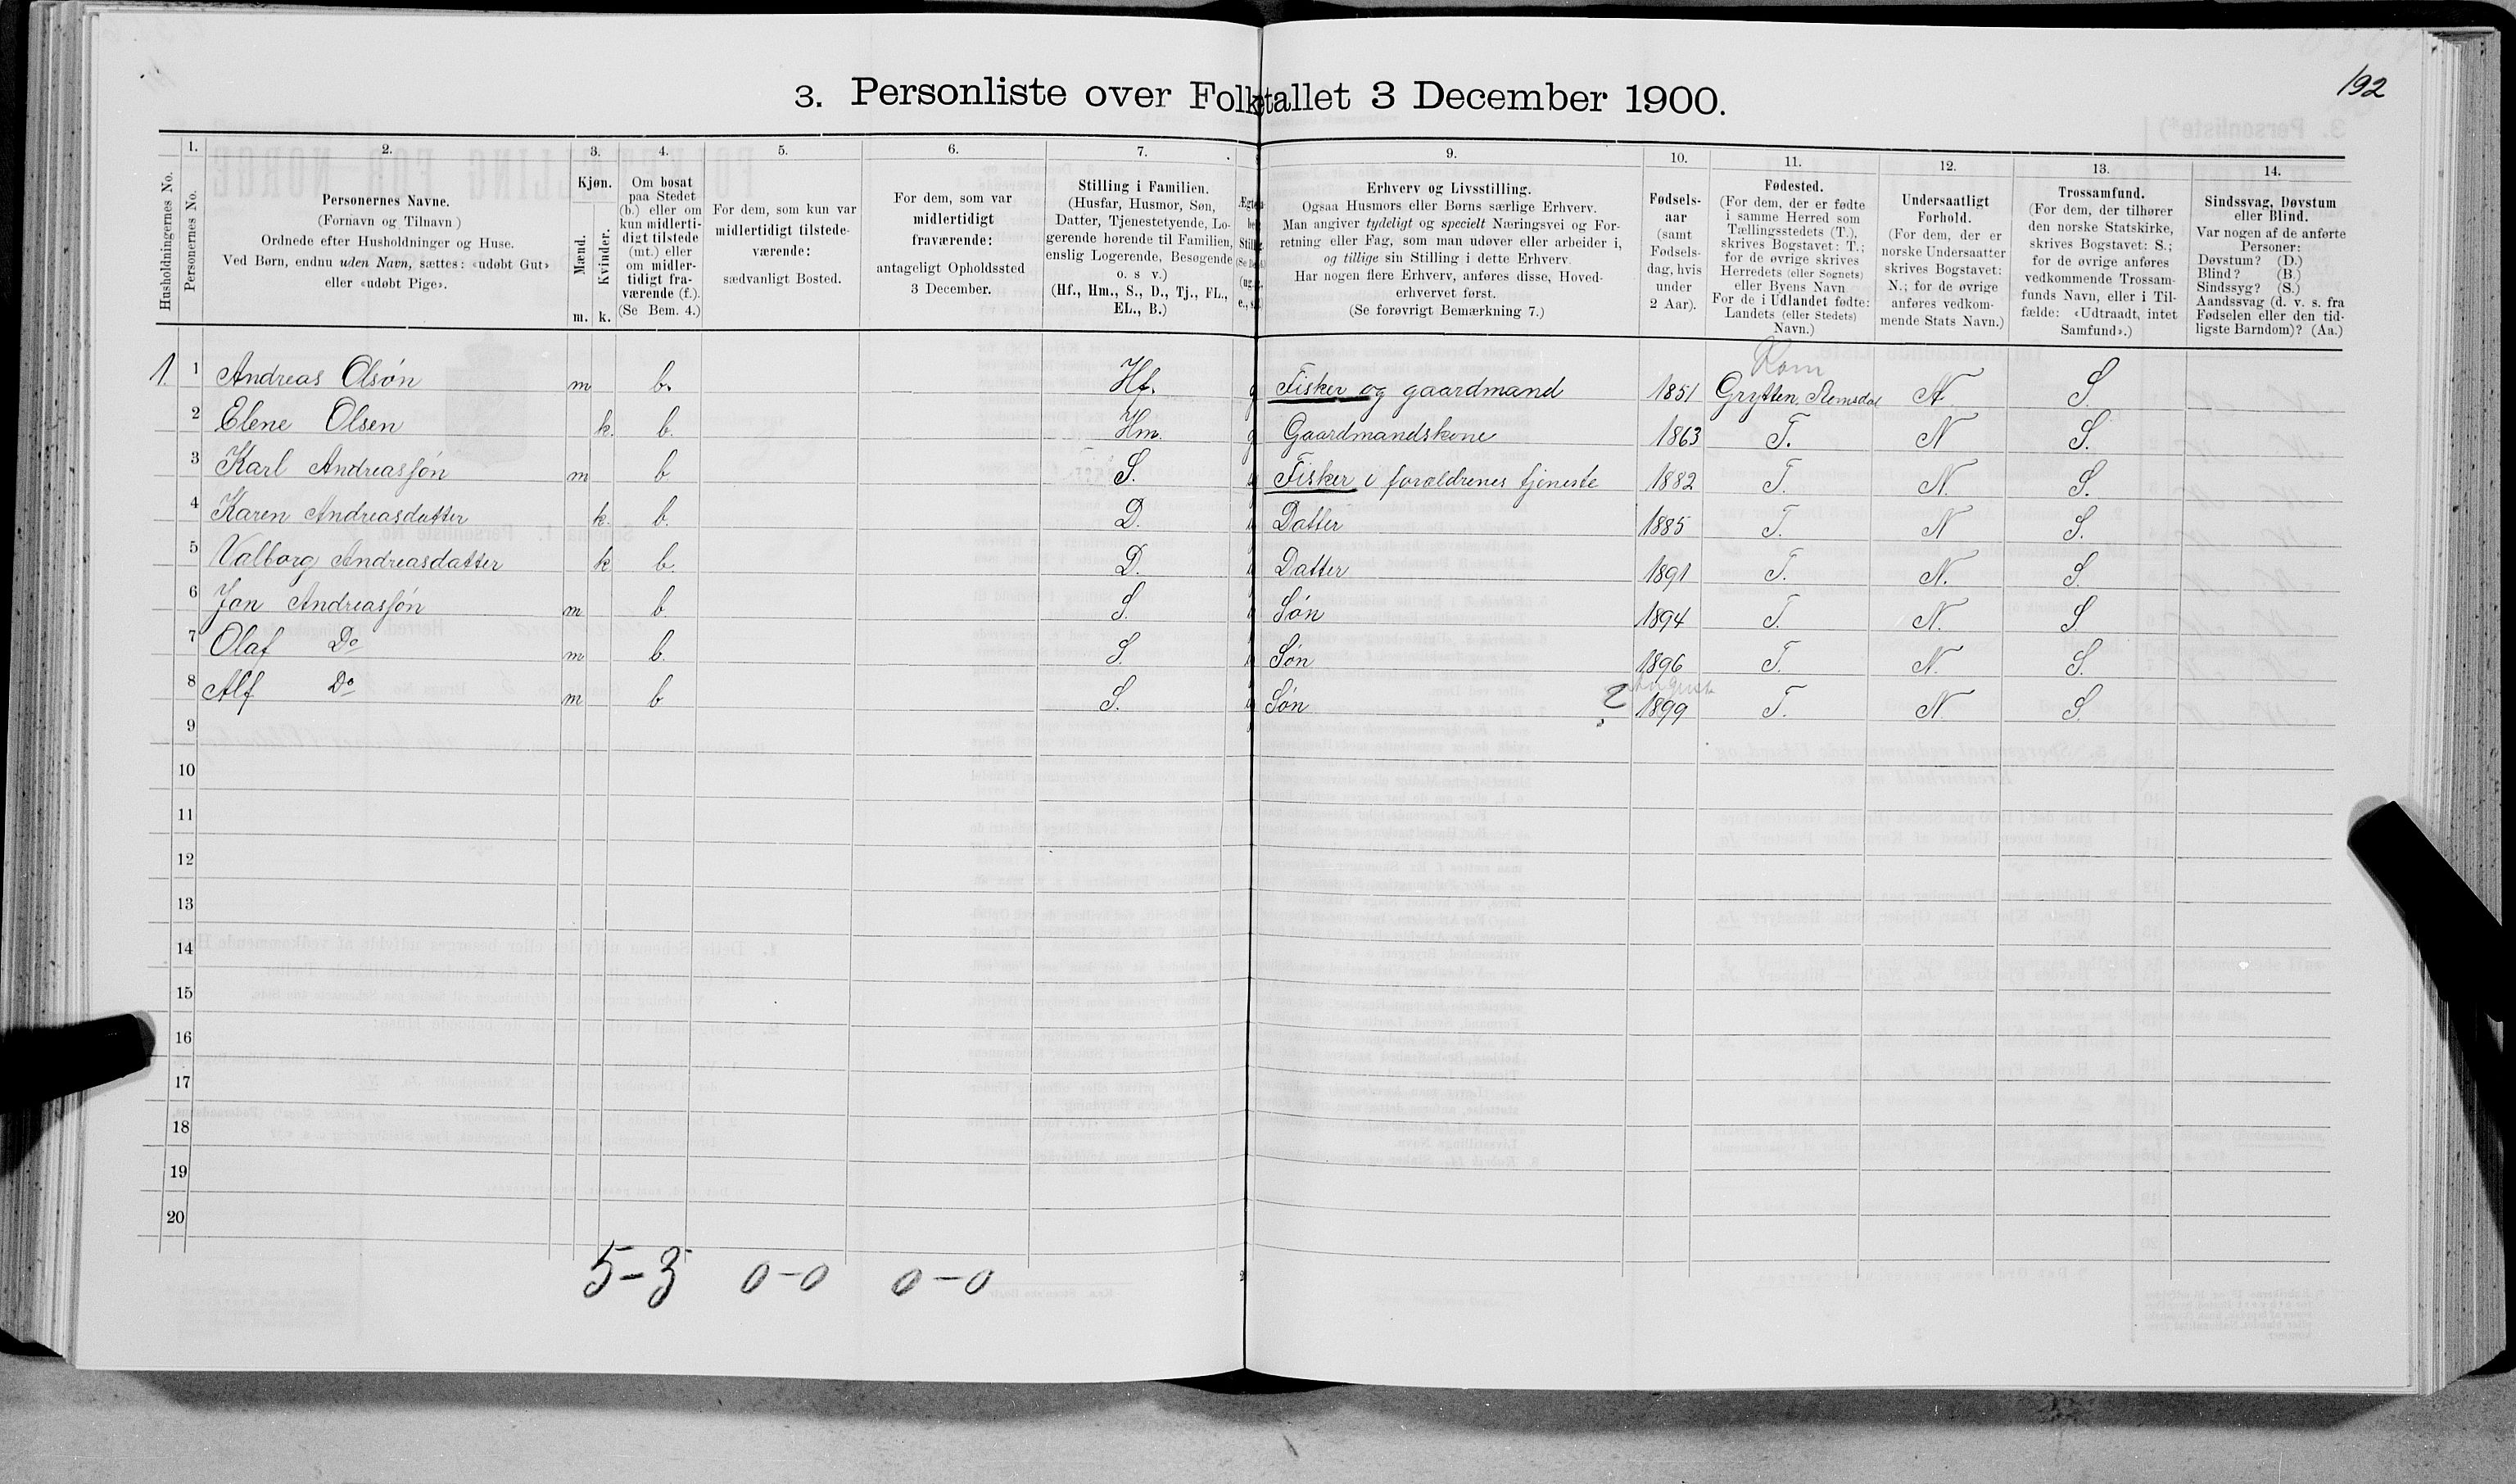 192
3. Personliste over Folketallet 3 December 1900.
1. 2. 3. 4. 5. 6. 7. 9. 10. 11. 12. 13. 14.
Husholdningernes No.
Personernes No.
Personernes Navne.
(Fornavn og Tilnavn)
Ordnede efter Husholdninger og Huse.
Ved Børn, endnu uden Navn, sættes: «udøbt Gut»
eller «udøbt Pige».
Kjøn.
Mænd.
Kvinder.
m. k.
Om bosat
paa Stedet
(b.) eller om
kun midlerti-
digt tilstede
(mt.) eller
om midler-
tidigt fra-
værende (f.).
(Se Bem. 4.)
For dem, som kun var
midlertidigt tilstede-
værende:
sædvanligt Bosted.
For dem, som var
midlertidigt
fraværende:
antageligt Opholdssted
3 December.
Stilling i Familien.
(Husfar, Husmor, Søn,
Datter, Tjenestetyende, Lo-
gerende hørende til Familien,
enslig Logerende, Besøgende
o. s v.)
(Hf., Hm., S., D., Tj., FL.,
EL., B.)
Erhverv og Livsstilling.
Ogsaa Husmors eller Børns særlige Erhverv.
Man angiver tydeligt og specielt Næringsvei og For-
retning eller Fag, som man udøver eller arbeider i,
og tillige sin Stilling i dette Erhverv.
Har nogen flere Erhverv, anføres disse, Hoved-
erhvervet først.
(Se forøvrigt Bemærkning 7.)
Fødsels-
aar
(samt
Fødsels-
dag, hvis
under
2 Aar).
Fødested.
(For dem, der er fødte
i samme Herred som
Tællingsstedets (T.),
skrives Bogstavet: T.;
for de øvrige skrives
Herredets (eller Sognets)
eller Byens Navn
For de i Udlandet fødte:
Landets (eller Stedets)
Navn.)
Undersaatligt
Forhold.
(For dem, der er
norske Undersaatter
skrives Bogstavet:
N.; for de øvrige
anføres vedkom-
mende Stats Navn.)
Trossamfund.
(For dem, der tilhører
den norske Statskirke,
skrives Bogstavet: S.;
for de øvrige anføres
vedkommende Trossam-
funds Navn, eller i Til-
fælde: «Udtraadt, intet
Samfund».)
Sindssvag, Døvstum
eller Blind.
Var nogen af de anførte
Personer:
Døvstum? (D.)
Blind? (B.)
Sindssyg? (S.)
Aandssvag (d. v. s. fra
Fødselen eller den tid-
ligste Barndom)? (Aa.)
Rom
1. 1 Andreas Olsøn m b. Hf. g Fisker og gaardmand 1851 Grytten, Romsdal N. S.
2 Elene Olsen k. b. Hm. g Gaardmandskone 1863 T. N S.
3 Karl Andreassøn m b S. Fisker i forældrenes tjeneste 1882 T. N. S.
4 Karen Andreasdatter k. b. D. Datter 1885 T. N S.
5 Valborg Andreasdatter k b. D. Datter 1891 T. N. S.
6 Jon Andreassøn m b. S. Søn 1894 T. N. S
7 Olaf Do m b. S. Søn 1896 T. N. S.
August
8 Alf Do m b S. Søn ? 1899 T. N. S.
9
10
11
12
13
14
15
16
17
18
19
20
5-3 0-0 0-0